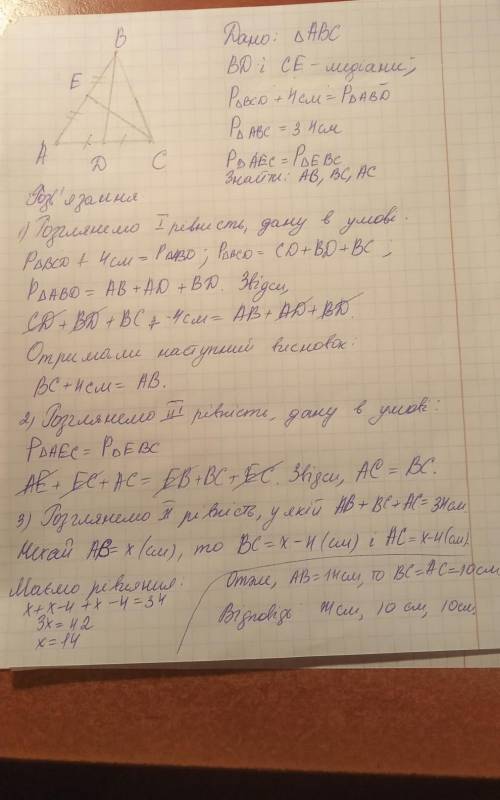 B
E
A
D
C
Дано: △ABC
BD і CE - медіани;
P△BCD + 4см = P△ABD
P△ABC = 34см
P△AEC = P△EBC
Знайти: AB, BC, AC
Розв'язання
1) Розглянемо I рівність, дану в умові:
P△BCD + 4см = P△ABD; P△BCD = CD + BD + BC;
P△ABD = AB + AD + BD. Звідси,
CD + BD + BC + 4см = AB + AD + BD.
Отримали наступний висновок:
BC + 4см = AB.
2) Розглянемо III рівність, дану в умові:
P△AEC = P△EBC
AE + EC + AC = EB + BC + EC. Звідси, AC = BC.
3) Розглянемо II рівність, у якій AB + BC + AC = 34см
Нехай AB = x (см), то BC = x - 4 (см) і AC = x - 4 (см)
Маємо рівняння:
x + x - 4 + x - 4 = 34
3x = 42
x = 14
Отже, AB = 14см, то BC = AC = 10см
Відповідь 14см, 10 см, 10см